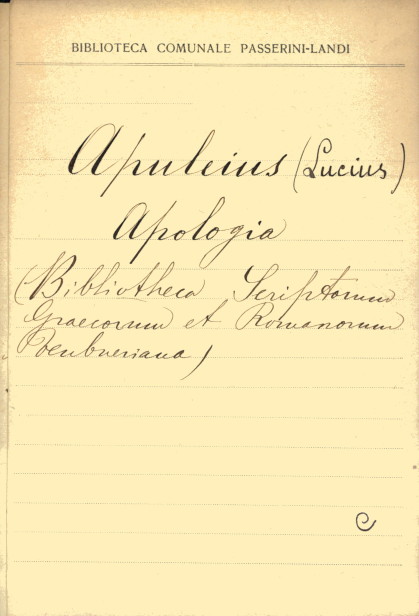 BIBLIOTECA COMUNALE PASSERINI-LANDI
Apuleius (Lucius)
Apologia
(Bibliotheca Scriptorum
Graecorum et Romanorum
Toenbneriana)
C